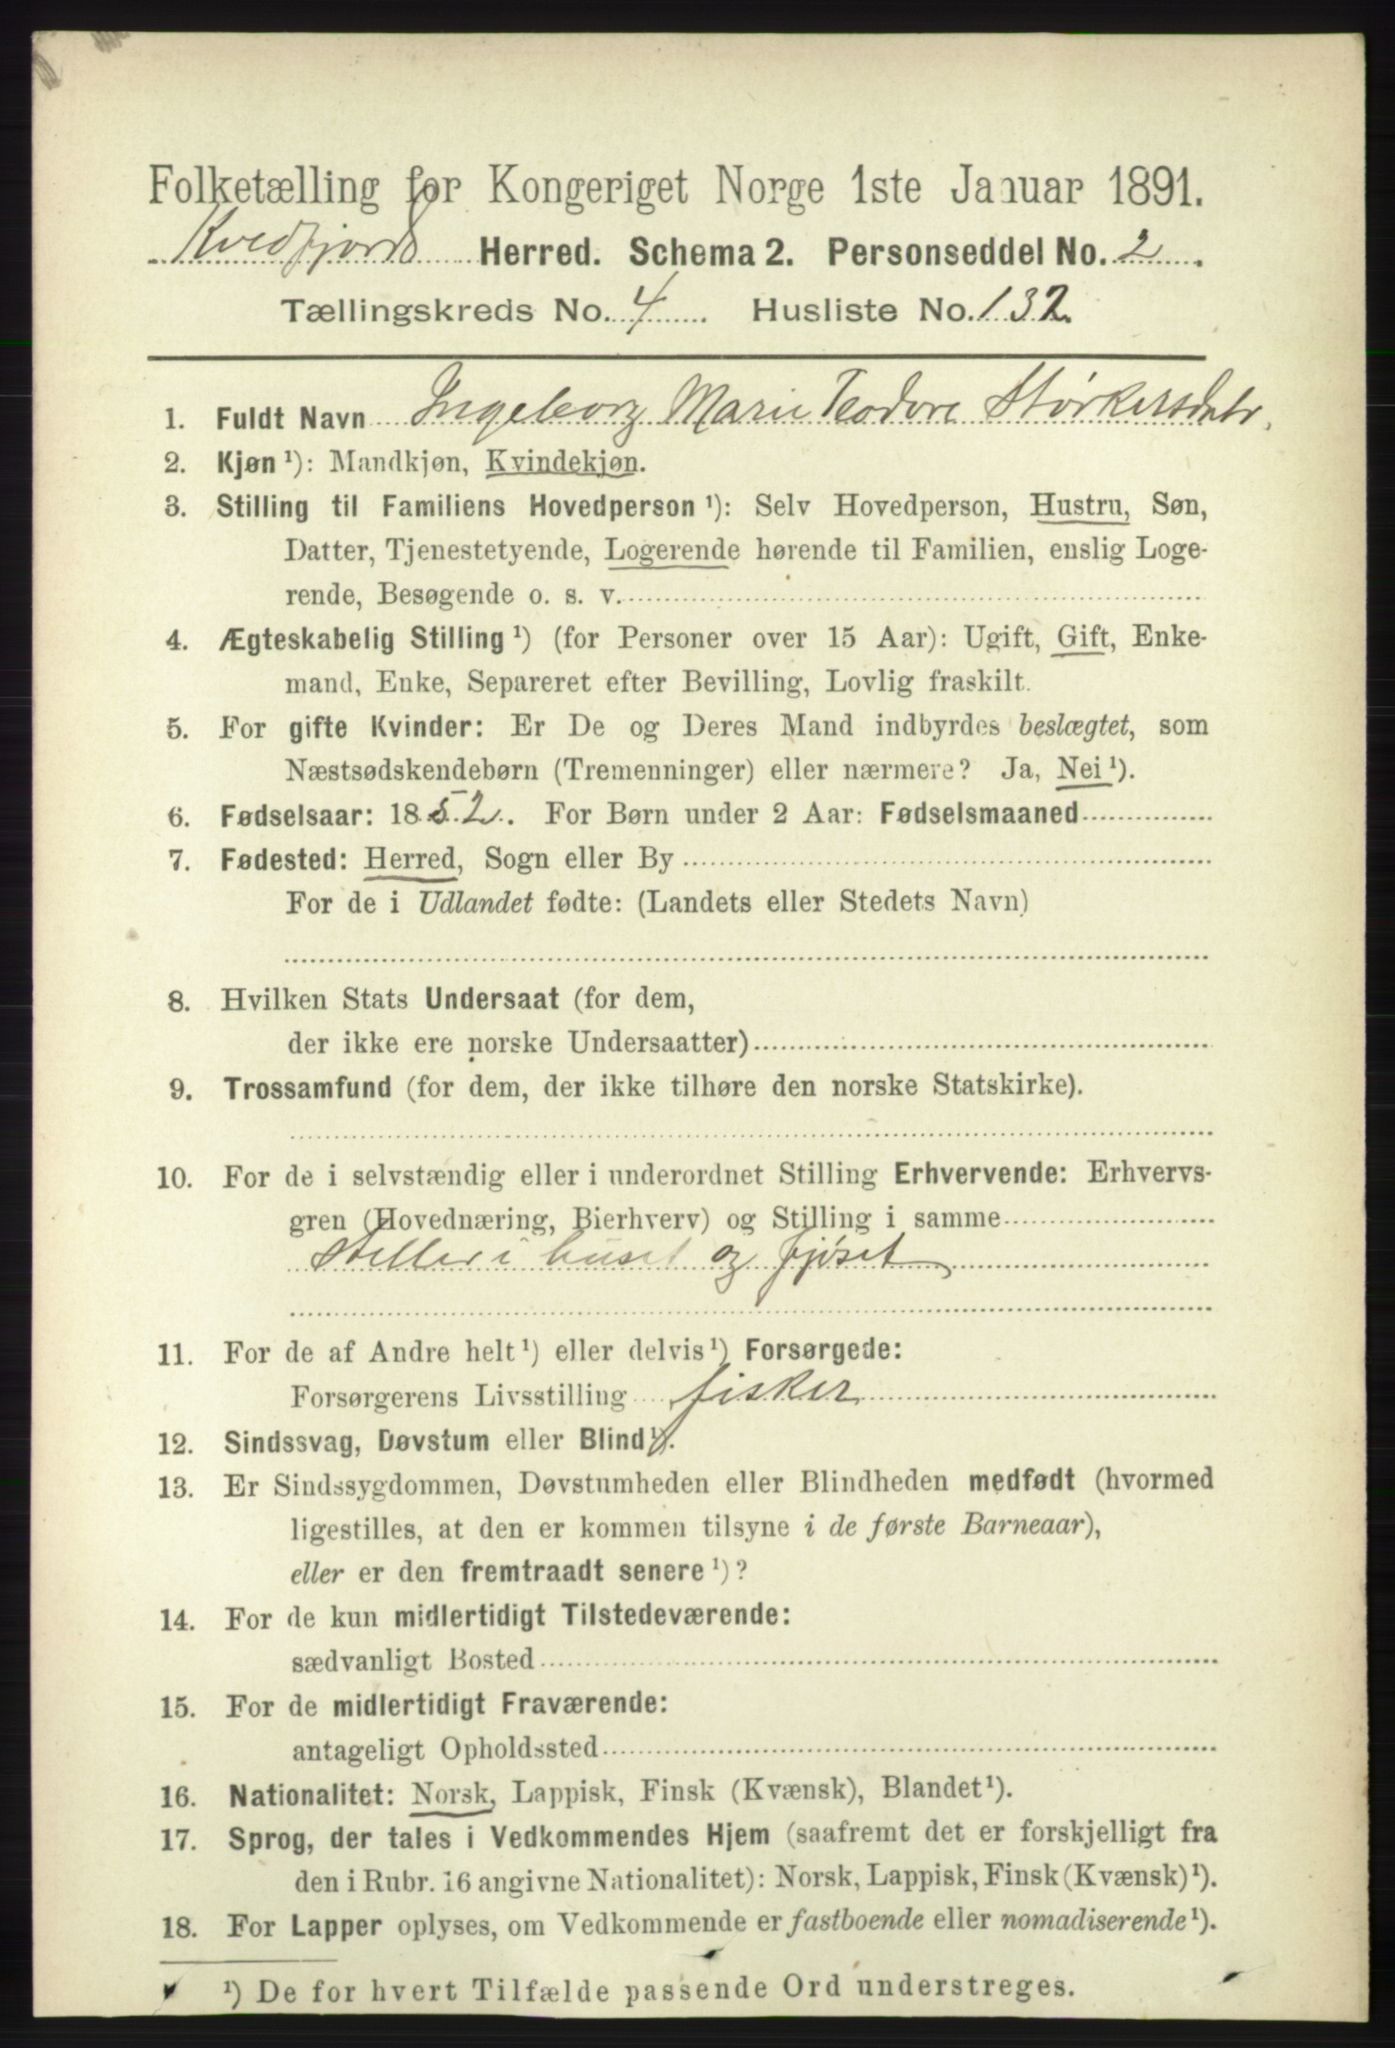 Folketælling for Kongeriget Norge 1ste Januar 1891.
Kvedfjord Herred. Schema 2. Personseddel No. 2
Tællingskreds No. 4 Husliste No. 132
1. Fuldt Navn Ingeborg Marie Teodore Størkersdatr.
2. Kjøn ¹): Mandkjøn, Kvindekjøn.
3. Stilling til Familiens Hovedperson ¹): Selv Hovedperson, Hustru, Søn,
Datter, Tjenestetyende, Logerende hørende til Familien, enslig Loge-
rende, Besøgende o. s. v.
4. Ægteskabelig Stilling ¹) (for Personer over 15 Aar): Ugift, Gift, Enke-
mand, Enke, Separeret efter Bevilling, Lovlig fraskilt.
5. For gifte Kvinder: Er De og Deres Mand indbyrdes beslægtet, som
Næstsødskendebørn (Tremenninger) eller nærmere? Ja, Nei ¹).
6. Fødselsaar: 1852. For Børn under 2 Aar: Fødselsmaaned
7. Fødested: Herred, Sogn eller By
For de i Udlandet fødte: (Landets eller Stedets Navn)
8. Hvilken Stats Undersaat (for dem,
der ikke ere norske Undersaatter)
9. Trossamfund (for dem, der ikke tilhøre den norske Statskirke).
10. For de i selvstændig eller i underordnet Stilling Erhvervende: Erhvervs-
gren (Hovednæring, Bierhverv) og Stilling i samme
steller i huset og fjøset
11. For de af Andre helt ¹) eller delvis ¹) Forsørgede:
Forsørgerens Livsstilling fisker
12. Sindssvag, Døvstum eller Blind ¹).
13. Er Sindssygdommen, Døvstumheden eller Blindheden medfødt (hvormed
ligestilles, at den er kommen tilsyne i de første Barneaar),
eller er den fremtraadt senere ¹)?
14. For de kun midlertidigt Tilstedeværende:
sædvanligt Bosted
15. For de midlertidigt Fraværende:
antageligt Opholdssted
16. Nationalitet: Norsk, Lappisk, Finsk (Kvænsk), Blandet ¹).
17. Sprog, der tales i Vedkommendes Hjem (saafremt det er forskjelligt fra
den i Rubr. 16 angivne Nationalitet): Norsk, Lappisk, Finsk (Kvænsk) ¹).
18. For Lapper oplyses, om Vedkommende er fastboende eller nomadiserende ¹).
¹) De for hvert Tilfælde passende Ord understreges.